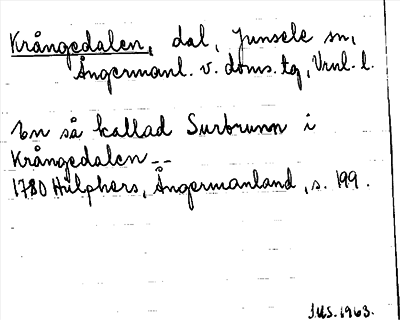 Krångedalen, dal, Junsele sn,
Ångermanl. v. doms. tg, Vrnl. l.
En så kallad Surbrunn i
Krångedalen --
1780 Hülphers, Ångermanland, s. 199.
J.U.S. 1963.